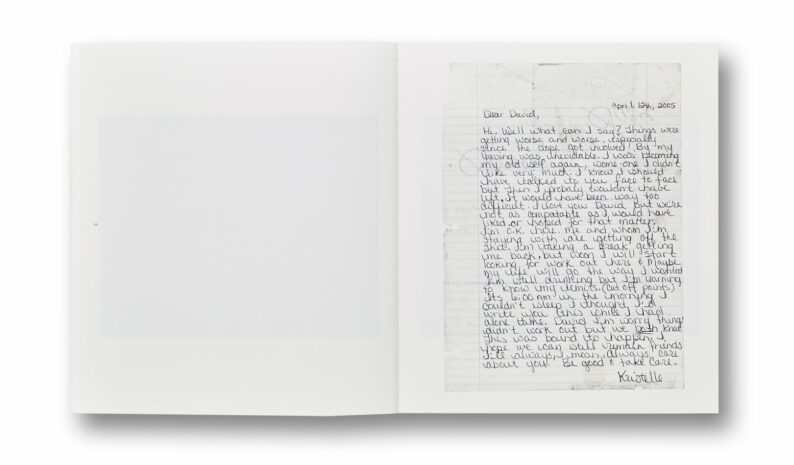 April 12th, 2005
Dear David,
Hi. Well what can I say? Things were
getting worse and worse, especially
since the dope got involved. By my
leaving was inevidable. I was becoming
my old self again, some one I didn't
like very much. I know I should
have talked to you face to face
but then I probaly wouldn't have
left. It would have been way too
difficult. I love you David but we're
not as compatable as I would have
liked or hoped for that matter.
I'm O.K. here. Me and whom I'm
staying with are getting off the
shit. I'm taking a break getting
me back, but soon I will start
looking for work out here & maybe
my life will go the way I wanted
I'm still drinking but I'm learning
to know my limits. (cut off points)
It's 6:00 AM in the morning I
couldn't sleep I thought I'd
write you this while I had
alone time. David I'm sorry things
didn't work out but we both knew
this was bound to happen. I
hope we can still remain friends
I'll always, I mean, always care
about you. Be good & take care.
Kristelle